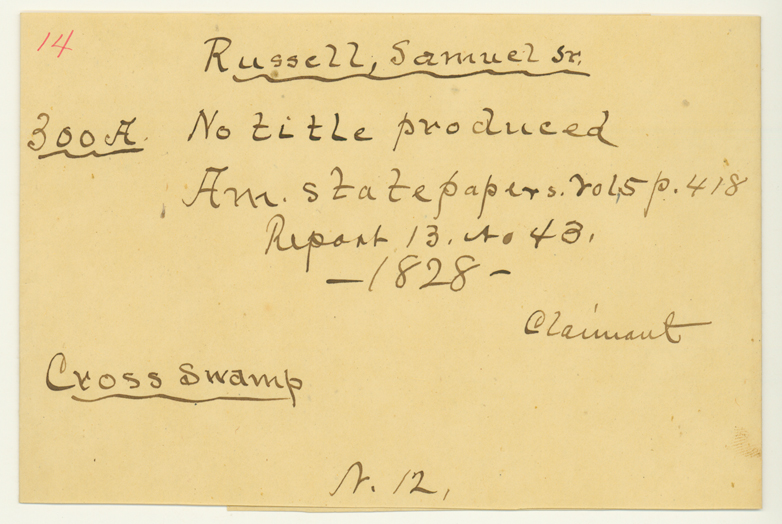 14
Russell, Samuel Sr.
300 A. No title produced
Am. State papers. Vol, 5 p. 418
Report 13. No 43.
—1828—
Claimant
Cross Swamp
N. 12,